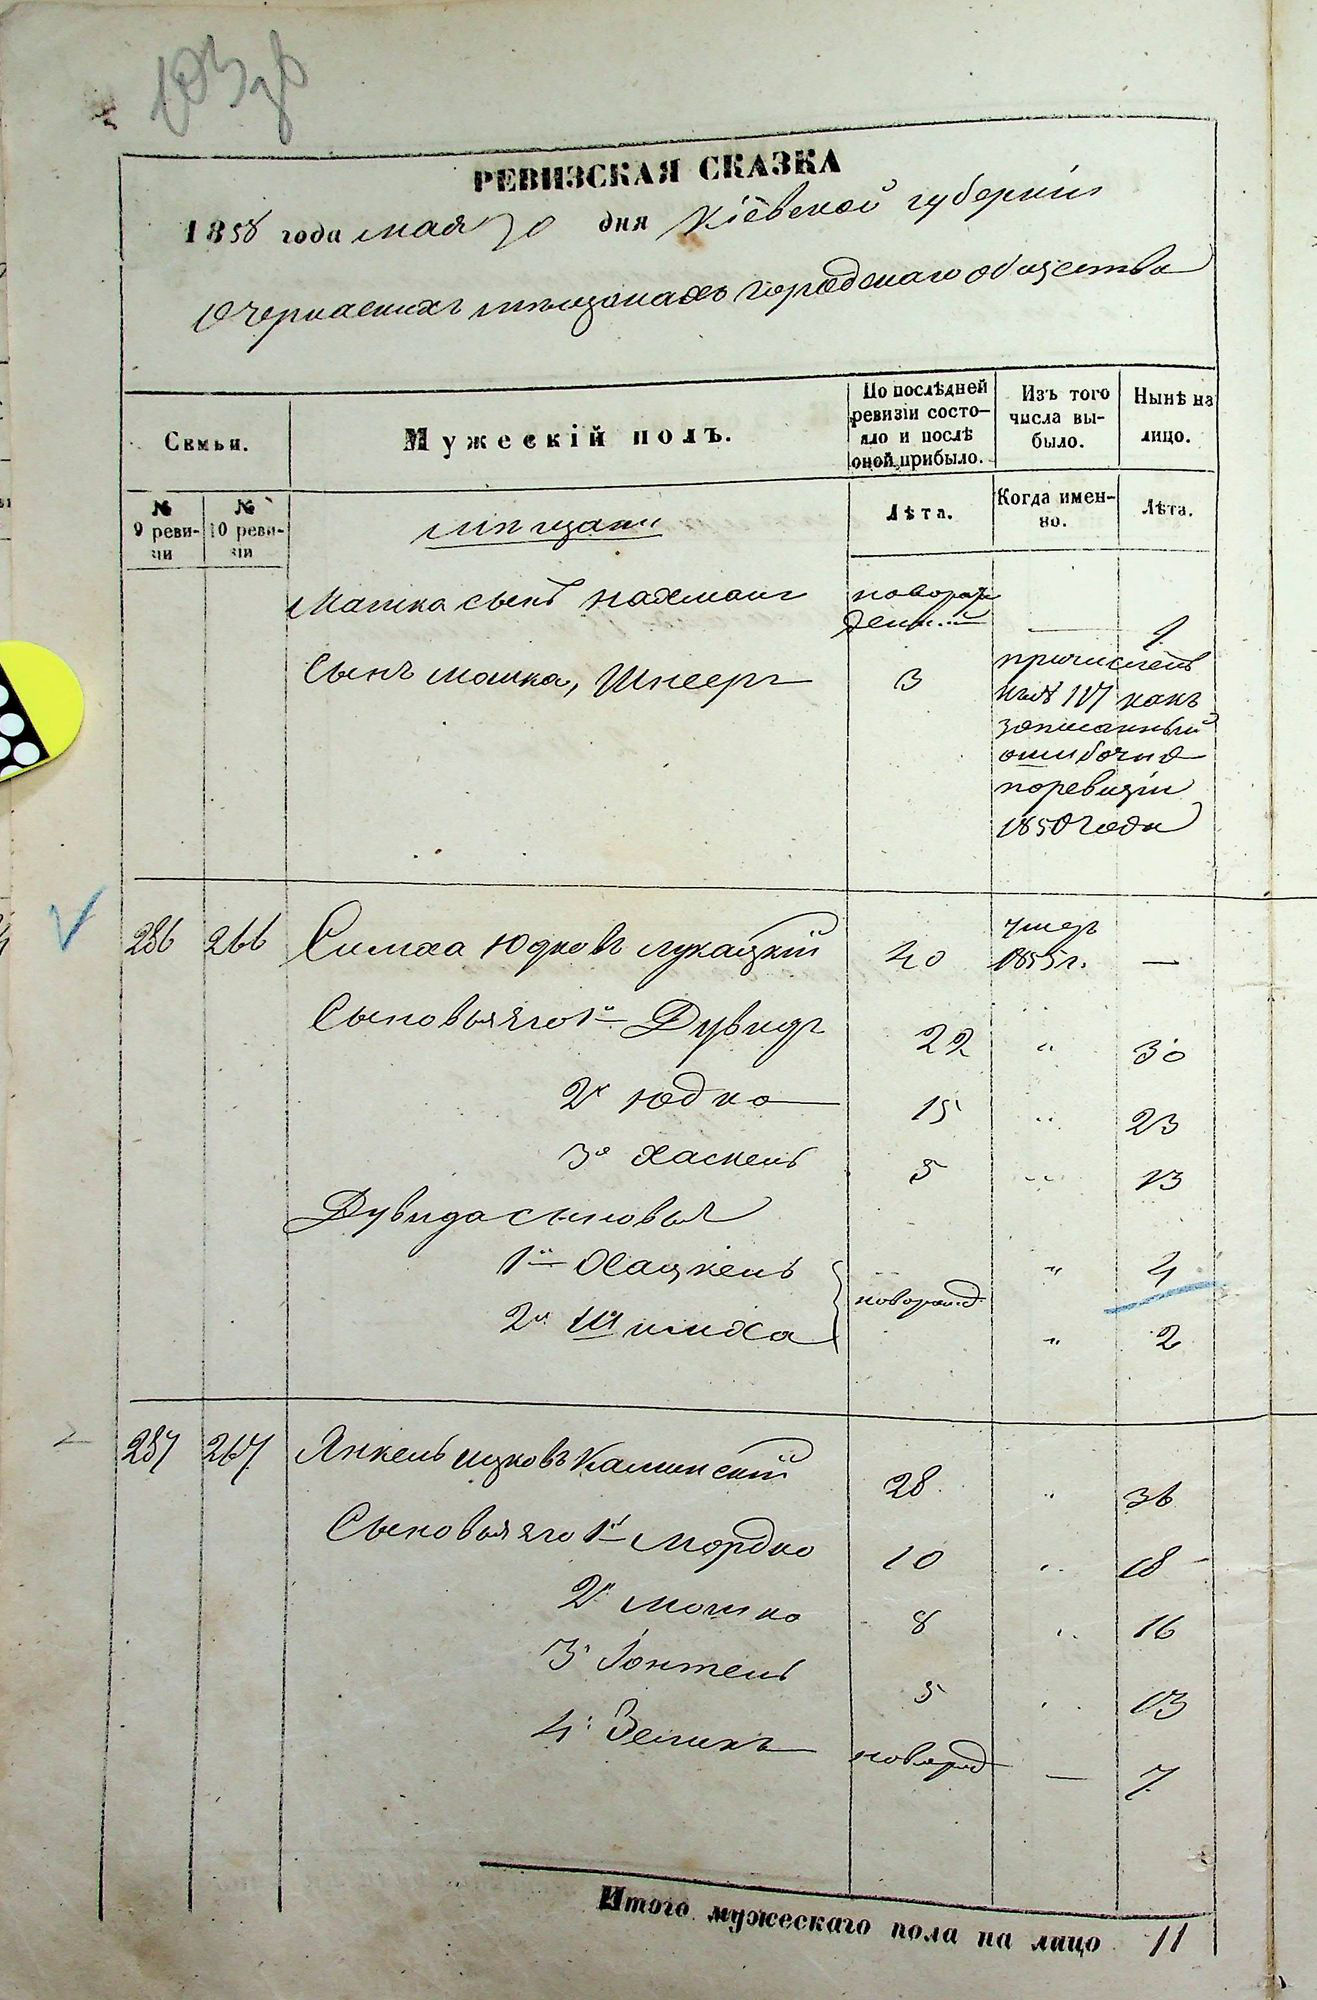 РЕВИЗСКАЯ СКАЗКА
1858 года мая 30 дня Кіевской губерніи
О черкаскихъ мѣщанахъ городскаго общества
Семьи.
Мужескій полъ.
По послѣдней ревизіи состо-
яло и послѣ
оной прибыло.
Изъ того
числа вы-
было.
Нынѣ на
лицо.
№
9 реви-
зіи
№
10 реви-
зіи
мѣщане
Лѣта.
Когда имен-
но.
Лѣта.
Машка сынъ Нахманъ новорож
ден. — 1
Сынъ Машка, Шнееръ 3
причисленъ
къ № 117 какъ
записанный
ошибочно
по ревизіи
1850 года
286 266 Симха Юдковъ Лукацкій 40 умеръ
1855 г. —
Сыновья его 1й Дувидъ 22 " 30
2й Юдко 15 " 23
3й Хаскель 5 " 13
Дувида сыновья
1й Хацкель " 4
новорожд
2й Шимха " 2
287 267 Янкель Ицковъ Каминскій 28 " 36
Сыновья его 1й Мордко 10 " 18
2й Мошко 8 " 16
3й Іонтель 5 " 13
4й Зеликъ новорожд — 7
Итого мужескаго пола на лицо 11